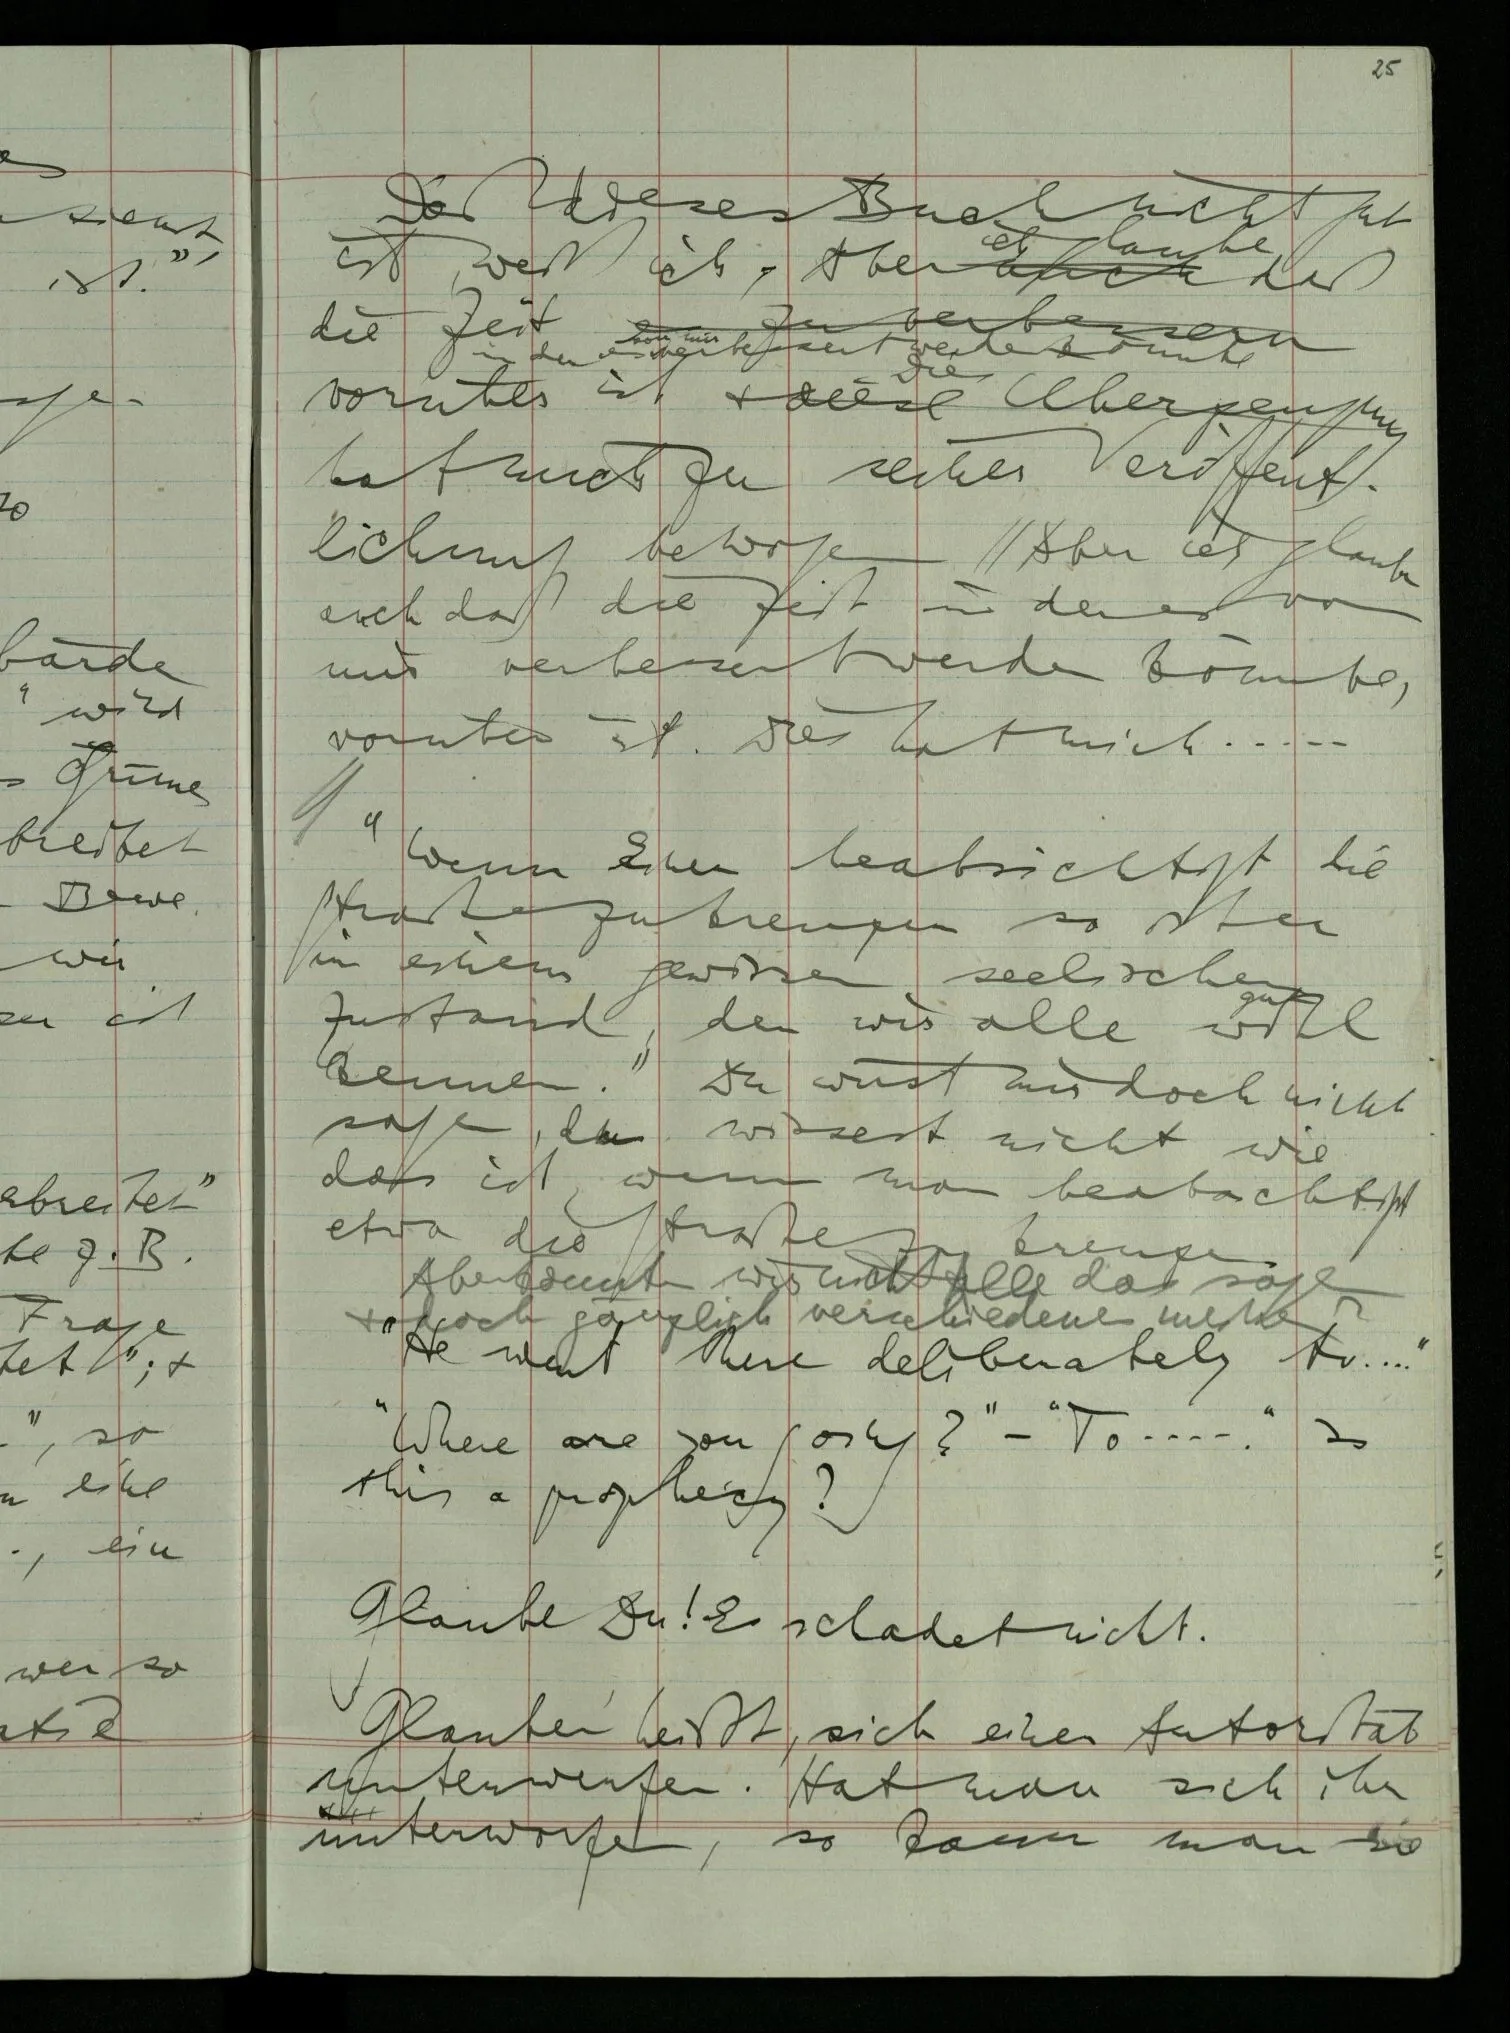 25
Daß dieses Buch nicht gut
ist, weiß ich, Aber auch daß
ich glaube
die Zeit es zu verbessern
in der es von mir verbessert werden könnte
vorüber ist + diese Überzeugung
Die
hat mich zu seiner Veröffent-
lichung bewogen // Aber ich glaube
auch daß die Zeit in der es von
mir verbessert werden könnte,
vorüber ist. Dies hat mich .....
// "Wenn Einer beabsichtigt die
Straße zu kreuzen so ist er
in einem gewissen seelischen
Zustand, den wir alle wohl
gut
kennen." Du wirst mir doch nicht
sagen, du wissest nicht wie
das ist, wenn man beabsichtigt
etwa die Straße zu kreuzen
Aber könnten wir nicht alle das sagen
+ doch gänzlich verschiedenes meinen?
"He went there deliberately to...."
"Where are you going?" – "To ....." Is
this a prophecy?
Glaube Du! Es schadet nicht.
Glauben heißt, sich einer Autorität
unterwerfen. Hat man sich ihr
unterworfen, so kann man sie
sieht
ist."
20
wird
Grünes
wir
ist
z.B.
Frage
", so
eine
., ein
wer so